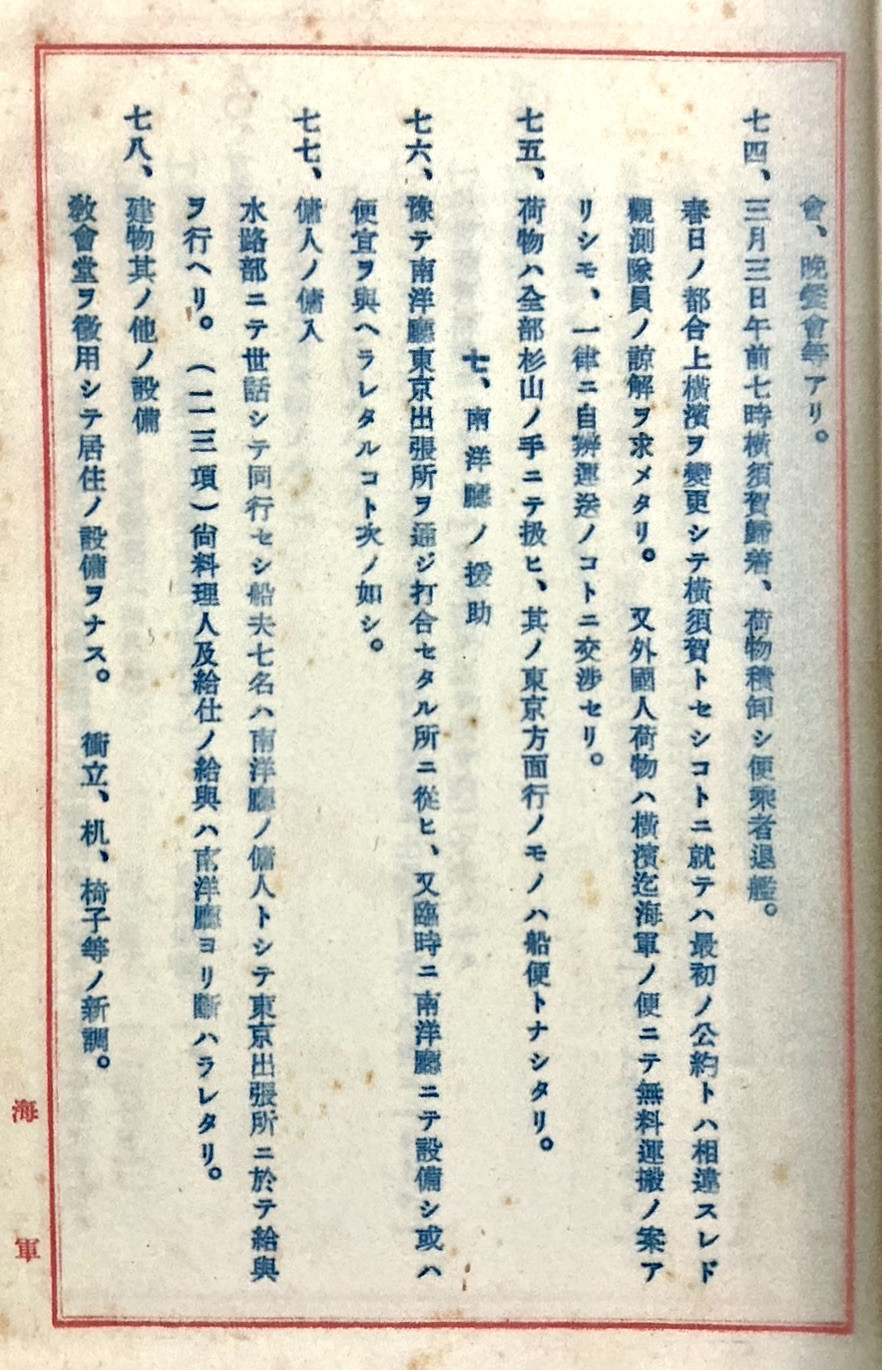 會、晩餐會等アリ。
七四、三月三日午前七時橫須賀歸着、荷物積卸シ便乘者退艦。
春日ノ都合上橫濱ヲ變更シテ橫須賀トセシコトニ就テハ最初ノ公約トハ相違スレド
觀測隊員ノ諒解ヲ求メタリ。 又外國人荷物ハ橫濱迄海軍ノ便ニテ無料運搬ノ案ア
リシモ、一律ニ自辨運送ノコトニ交涉セリ。
七五、荷物ハ全部杉山ノ手ニテ扱ヒ、其ノ東京方面行ノモノハ船便トナシタリ。
七、南洋廳ノ援助
七六、豫テ南洋廳東京出張所ヲ通ジ打合セタル所ニ從ヒ、又臨時ニ南洋廳ニテ設備シ或ハ
便宜ヲ與ヘラレタルコト次ノ如シ。
七七、傭人ノ傭入
水路部ニテ世話シテ同行セシ船夫七名ハ南洋廳ノ傭人トシテ東京出張所ニ於テ給與
ヲ行ヘリ。(一三項)尙料理人及給仕ノ給與ハ南洋廳ヨリ斷ハラレタリ。
七八、建物其ノ他ノ設備
敎會堂ヲ徵用シテ居住ノ設備ヲナス。 衝立、机、椅子等ノ新調。
海軍